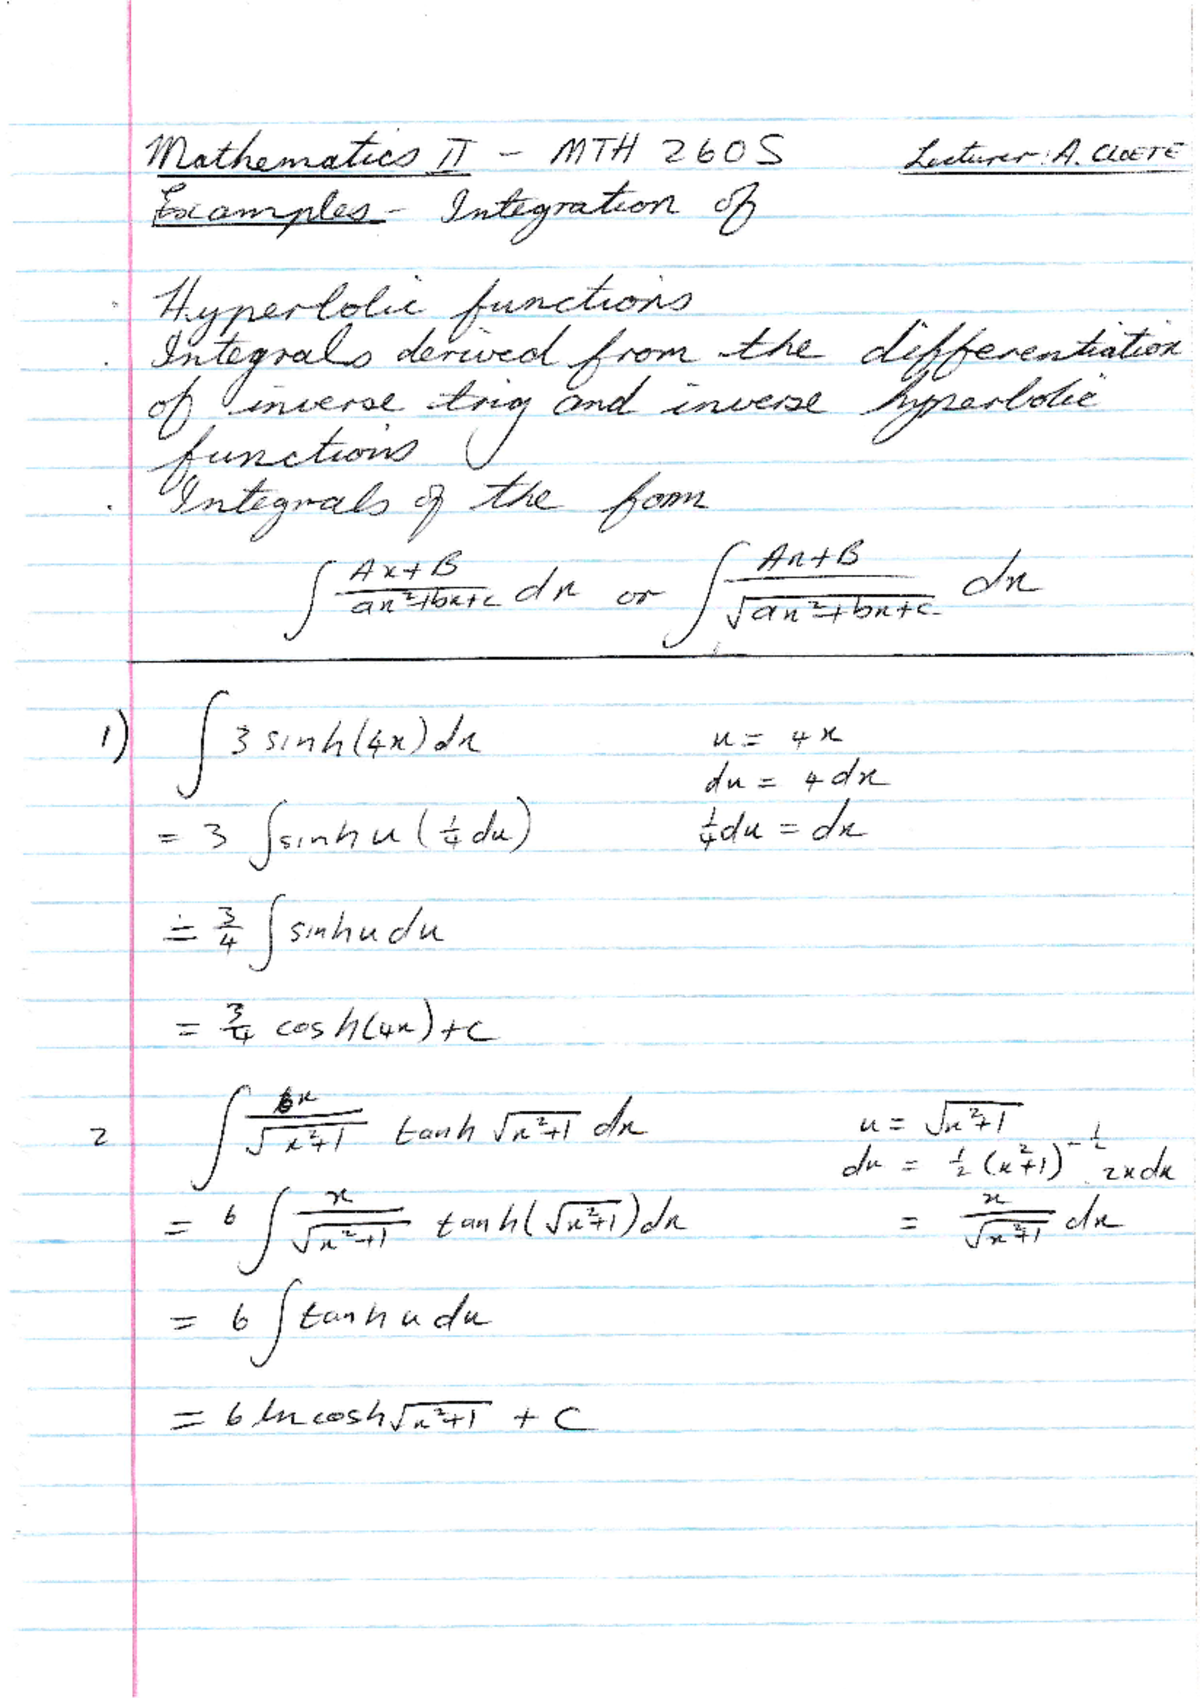 Mathematics II - MTH 260S Lecturer: A. CLOETE
Examples - Integration of
· Hyperbolic functions
· Integrals derived from the differentiation
of inverse trig and inverse hyperbolic
functions
· Integrals of the form
∫ (Ax+B)/(ax²+bx+c) dx or ∫ (Ax+B)/√(ax²+bx+c) dx
1) ∫ 3 sinh(4x) dx u = 4x
du = 4 dx
= 3 ∫ sinh u (¼ du) ¼ du = dx
= ¾ ∫ sinh u du
= ¾ cosh(4x) + C
2 ∫ 6x/√(x²+1) tanh √(x²+1) dx u = √(x²+1)
du = ½ (x²+1)^(-½) 2x dx
= 6 ∫ x/√(x²+1) tanh(√(x²+1)) dx = x/√(x²+1) dx
= 6 ∫ tanh u du
= 6 ln cosh √(x²+1) + C